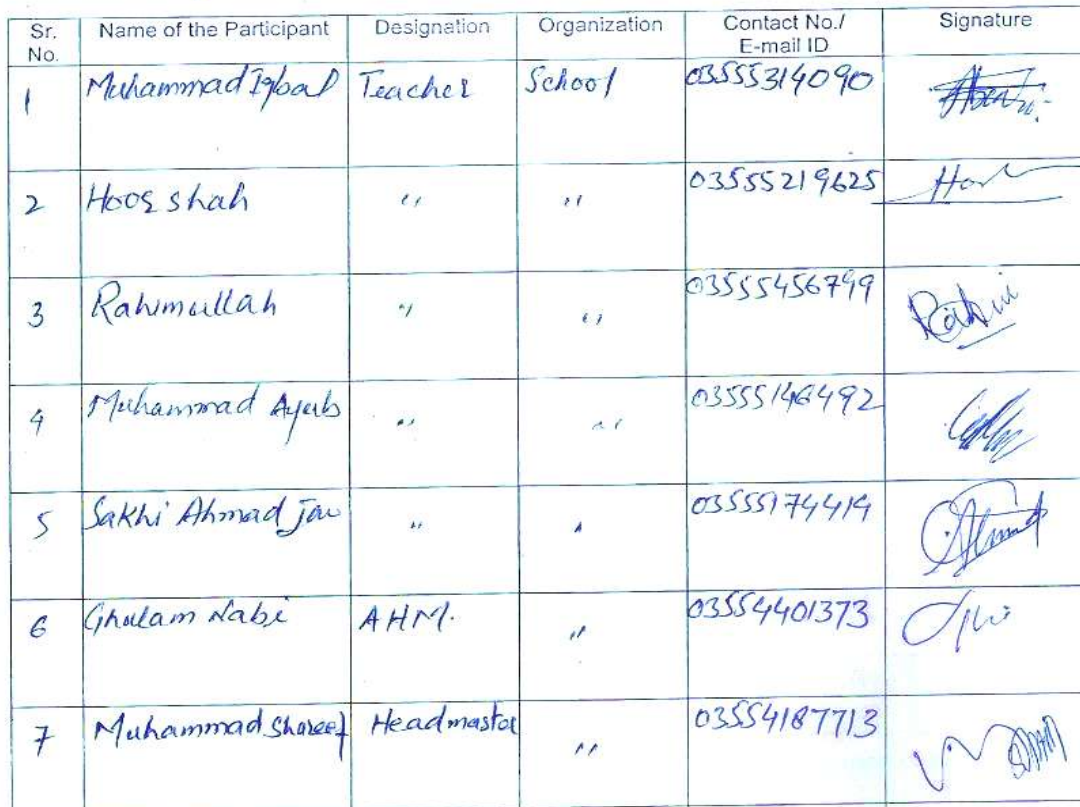 Sr. No. Name of the Participant Designation Organization Contact No./ E-mail ID Signature
1 Muhammad Iqbal Teacher School 03555314090
2 Hoor shah " " 03555219625
3 Rahimullah " " 03555456799
4 Muhammad Ayub " " 03555146492
5 Sakhi Ahmad Jan " " 03555174414
6 Ghulam Nabi AHM. " 03554401373
7 Muhammad Shareef Headmaster " 03554187713